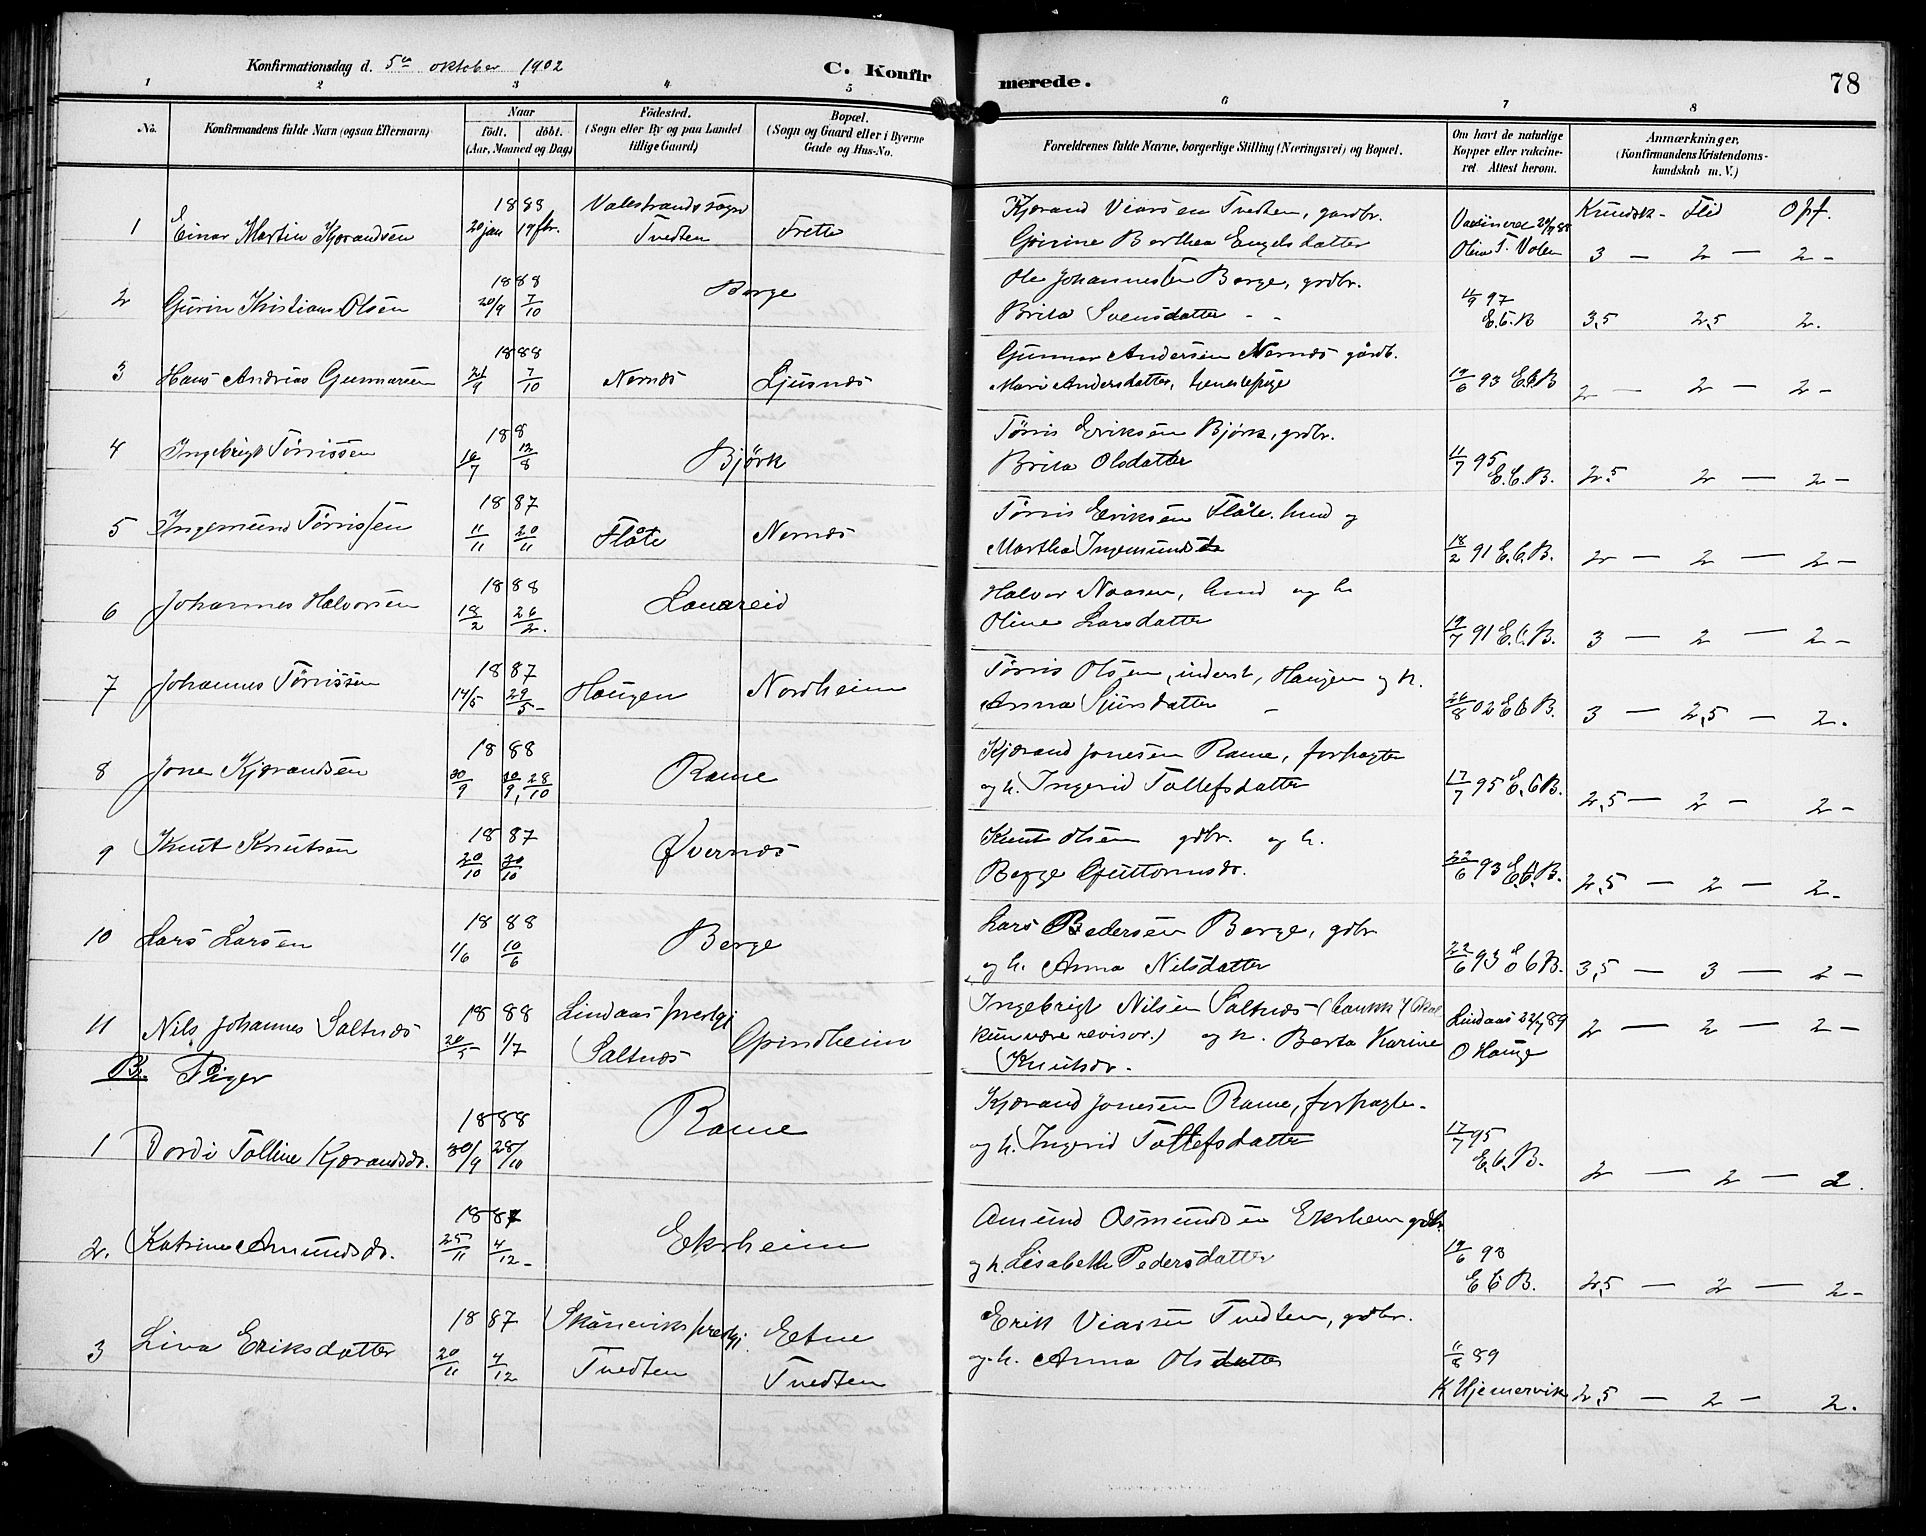 Konfirmationsdag d. 5te oktober 1902 C. Konfirmerede. 78
1 2 3 4 5 6 7 8
No. Konfirmandens fulde Navn (ogsaa Efternavn) Naar født. døbt. (Aar, Maaned og Dag) Fødested. (Sogn eller By og paa Landet tillige Gaard) Bopæl. (Sogn og Gaard eller i Byerne Gade og Hus-No. Forældrenes fulde Navne, borgerlige Stilling (Næringsvei) og Bopæl. Om havt de naturlige Kopper eller vakcineret. Attest herom. Anmærkninger, (Konfirmandens Kristendomskundskab m. V.)
Kundsk- Flid Opf.
1 Einar Martin Kjørandsen 1888 20 jan 19 fbr. Valestrands sogn Tvedten Frette
Kjørand Viarsen Tvedten, gardbr.
Berthea Engelsdatter
3 — 2 — 2 —
2 Kristians Olsen 1888 20/9 7/10 Berge
Ole Johannessen Berge, grdbr.
Brita Svensdatter - -
97 E.C.B 3,5 2,5 2.
3 Hans Andreas Gunnarsen 1888 21/9 7/10 Nernes Ljusnes
Gunnar Andersen Nernes gårdb.
Mari Andersdatter, tjenestepige
19/6 93 E.C.B 2 — 2 — 2 —
4 Ingebrigt Tørrissen 188 16/7 12/8 Bjørk
Tørris Eriksen Bjørk, grdbr.
Brita Olsdatter
11/7 95 E.C.B. 2.5 2 — 2 —
5 Ingemund Tørrissen 1887 11/11 20/11 Flåte Nernes
Tørris Eriksen Flåte. husmd og
Martha Ingemundsd.
18/2 91 E.C.B. 2 — 2 — 2 —
6 Johannes Halvorsen 1888 18/2 26/2. Lauareid
Halvor Naasen, husmd og h
Oline Larsdatter
19/7 91 E.C.B. 3 — 2 — 2 —
7 Johannes Tørrissen 1887 14/5 29/5 - Haugen Nordheim
Tørris Olsen, inderst, Haugen og h.
Anna Sjursdatter -
26/8 02 E C B. 3 — 2,5 — 2.
8 Jone Kjørandsen 1888 30/9 30/9, 28/10 Rame
Kjørand Jonesen Rame, forpagter
og h. Ingerid Tollefsdatter
17/7 95 E.C.B. 2,5 — 2 — 2 —
9 Knut Knutsen 1887 20/10 30/10 Øvernes
Knut Olsen gdbr. og h.
Guttormsd.
22/6 93 E.C.B. 2,5 — 2 — 2.
10 Lars Larsen 1888 1/6 10/6 Berge
Lars Pedersen Berge, gdbr
og h. Anna Nilsdatter
22/6 93 E C B. 3,5 — 3 — 2 —
11 Nils Johannes Saltnes 1888 20/5 1/7 Lindaas prestgj Saltnes Grindheim
Ingebrigt Nilsen Saltnes
revisor.) og h. Berta Karine
Knutsd.
Lindaas 89 O Hauge
2 — 2 — 2 —
B. Piger
1 Dordi Talline Kjørandsd. 1888 30/9 28/10 Rame
Kjørand Jonesen Rame, forpagter.
og h. Ingerid Tollefsdatter
17/7 95 E.C.B. 2 — 2 — 2.
2. Katrine Amundsd. 1887 25/11 4/12 - Ekrheim
Amund Osmundsen Ekrheim grdbr.
og h. Lisabeth Pedersdatter
19/6 93 E C B. 2,5 — 2 — 2 —
3 Lina Eriksdatter 1887 20/11 4/12 Skåneviks prestgj. Tvedten Etne Tvedten
Erik Viarsen Tvedten, grdbr.
og h. Anna Olsdatter
11/8 89
K Hjemervik 2,5 — 2 — 2.